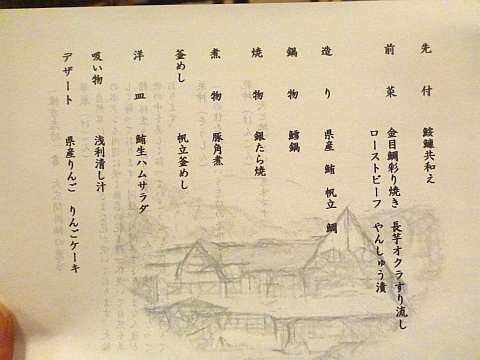 先付　鮟鱇共和え
前菜　金目鯛彩り焼き　長芋オクラすり流し
ローストビーフ　やんしゅう漬
造り　県産　鮪　帆立　鯛
鍋物　鱈鍋
焼物　銀たら焼
煮物　豚角煮
釜めし　帆立釜めし
洋皿　鮪生ハムサラダ
吸い物　浅利清し汁
デザート　県産りんご　りんごケーキ